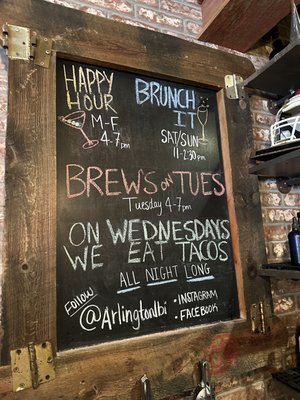 HAPPY
HOUR
M-F
4-7pm
BRUNCH
IT
SAT/SUN
11-2:30pm
BREWS on TUES
Tuesday 4-7pm
ON WEDNESDAYS
WE EAT TACOS
ALL NIGHT LONG
Follow
@Arlingtonlbi
• INSTAGRAM
• FACEBOOK